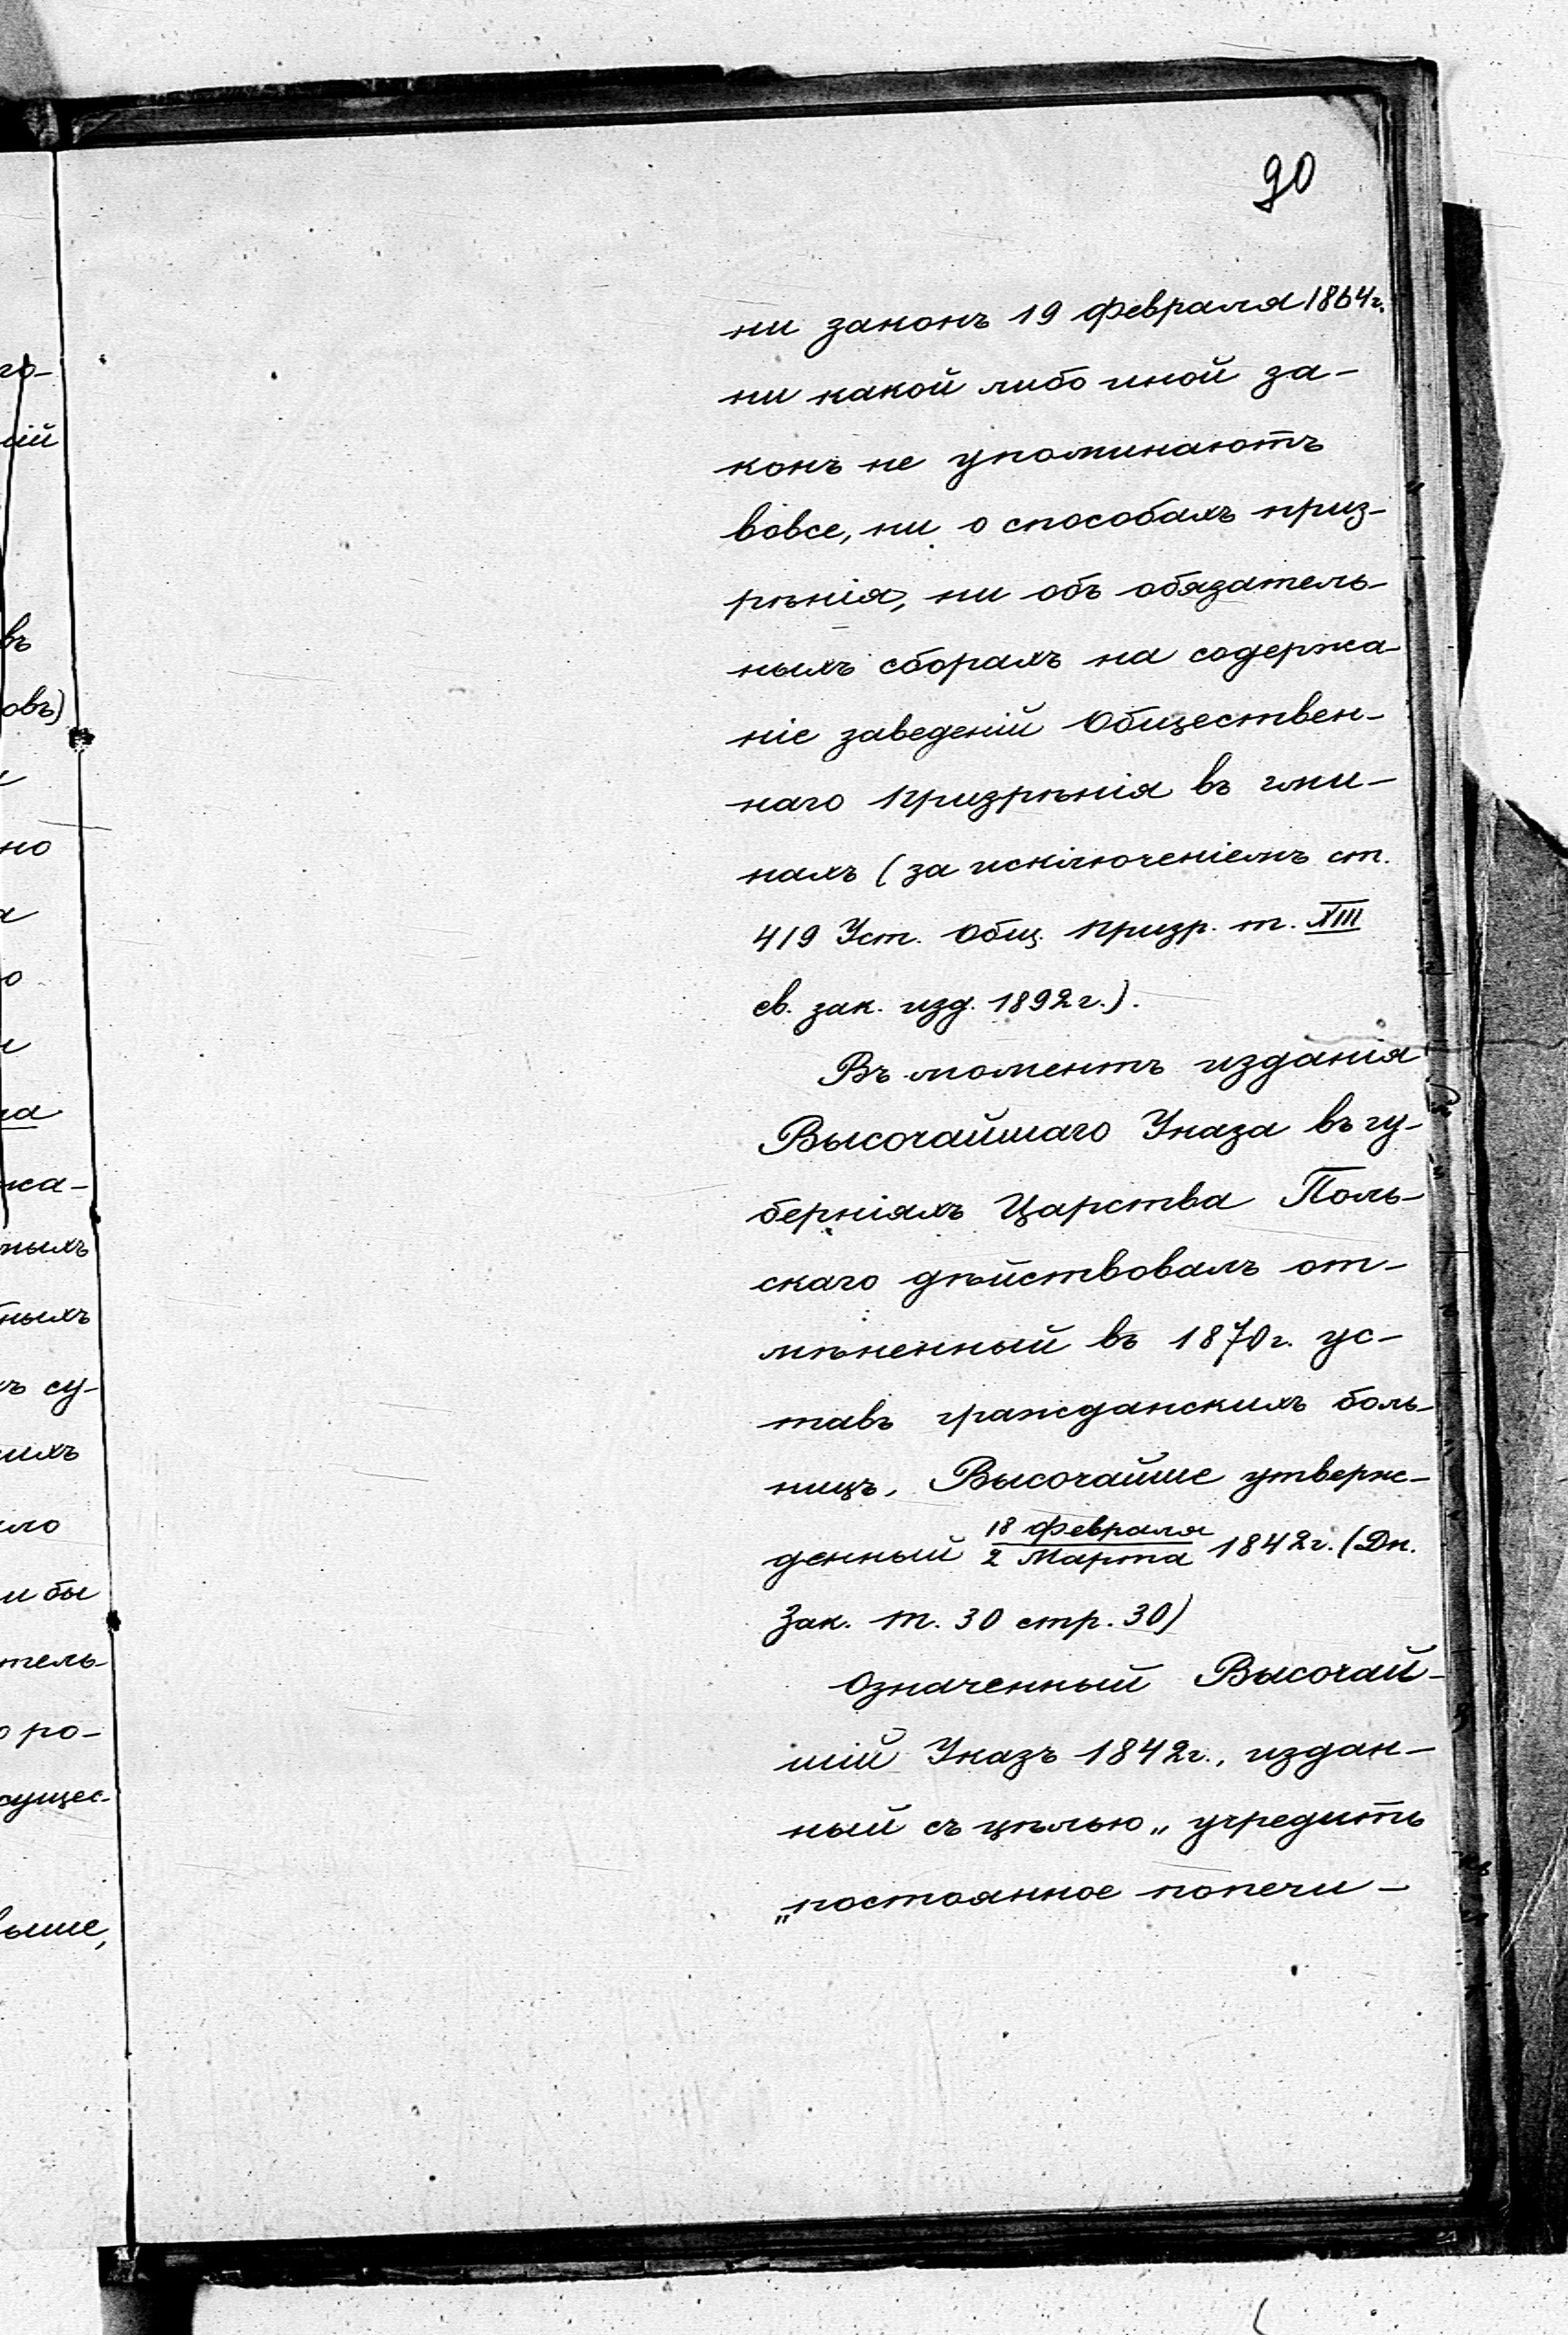 90
ни законъ 19 февраля 1864г.
ни какой либо иной за-
конъ не упоминаютъ
вовсе, ни о способахъ приз-
рѣнія, ни объ обязатель-
ныхъ сборахъ на содержа-
ніе заведеній Обществен-
наго Призрѣнія въ гми-
нахъ (за исключеніемъ ст.
419 Уст. Общ. Призр. т. XIII
св. зак. изд. 1892г.).
Въ моментъ изданія
Высочайшаго Указа въ гу-
берніяхъ Царства Поль-
скаго дѣйствовалъ от-
мѣненный въ 1870г. ус-
тавъ гражданскихъ боль-
ницъ, Высочайше утверж-
денный 18 февраля/2 Марта 1842г. (Дн.
Зак. т. 30 стр. 30)
Означенный Высочай-
шій Указъ 1842г., издан-
ный съ цѣлью „учредить
„постоянное попечи-
го-
въ
овъ)
но
на
жа-
ныхъ
ныхъ
ъ су-
ихъ
ло
и бы
тель-
о ро-
сущес-
выше,